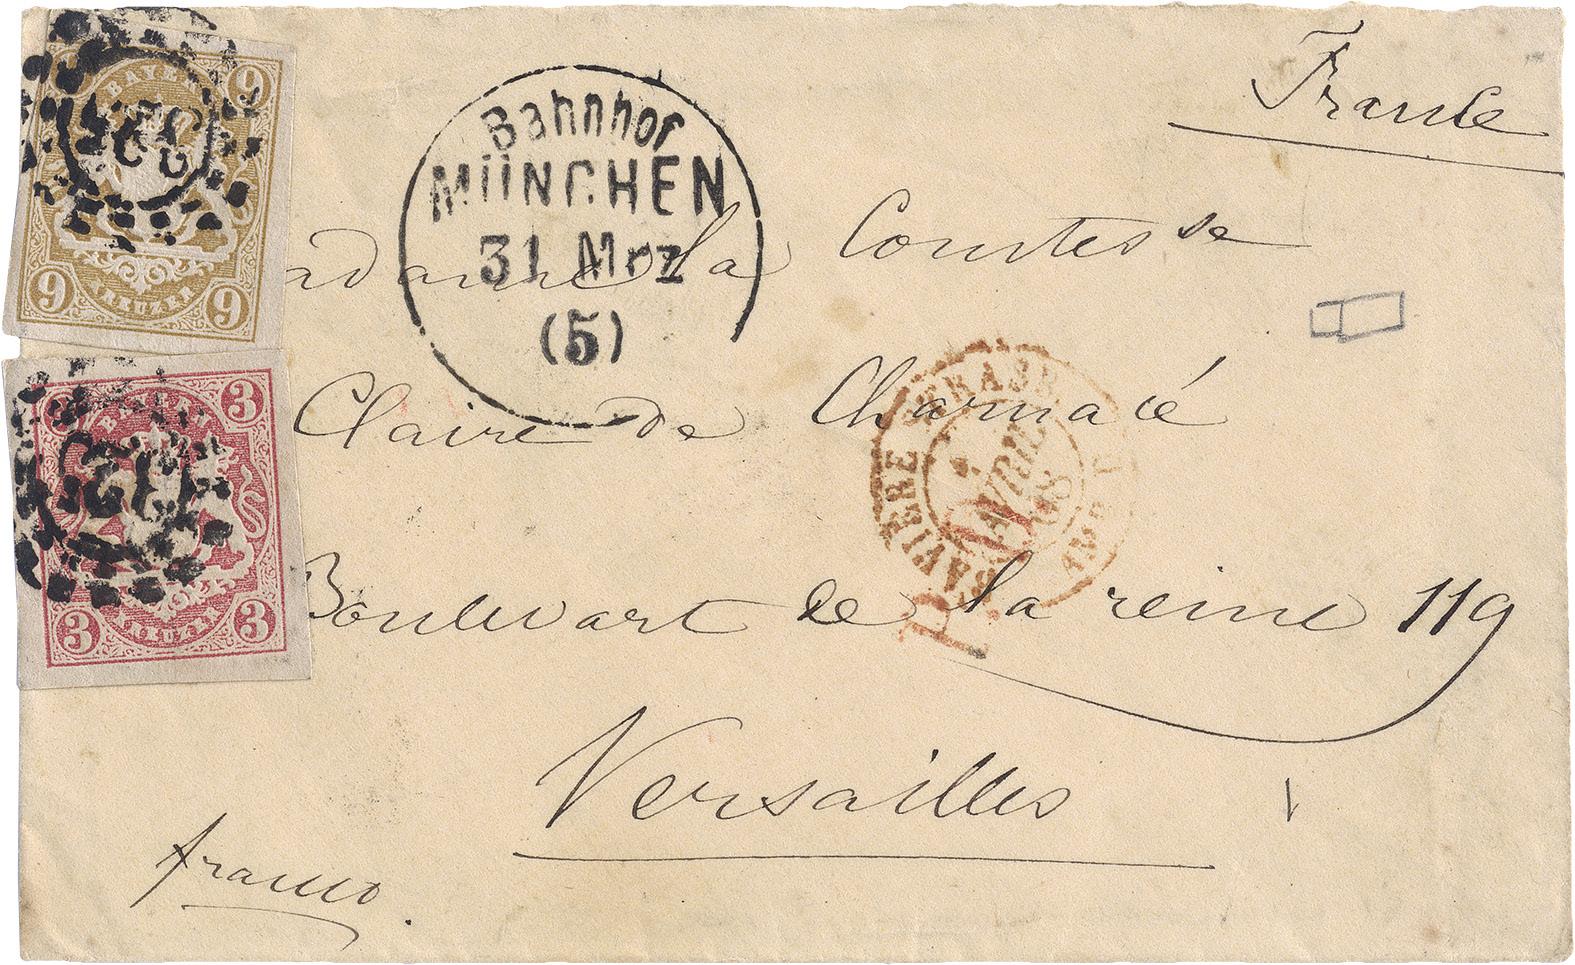 France
9
BAYERN
9
9
KREUZER
9
Bahnhof
MÜNCHEN
31 Mrz
(5)
adame la Comtesse
3
3
KREUZER
3
Claire de Charnacé
BAVIÈRE STRASB
AVRIL
68
Boulevart de la reine 119
Versailles
franco.